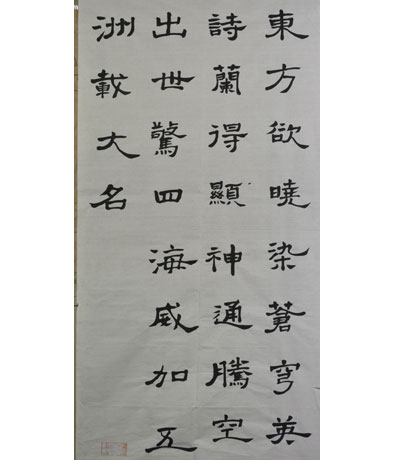 東方欲曉染蒼穹英
詩蘭得顯神通騰空
出世驚四海威加五
洲載大名